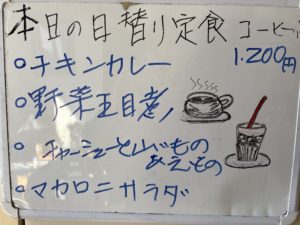 本日の日替り定食 コーヒー
1.200円
○チキンカレー
○野菜五目煮
○チャーシューと山いもの
あえもの
○マカロニサラダ